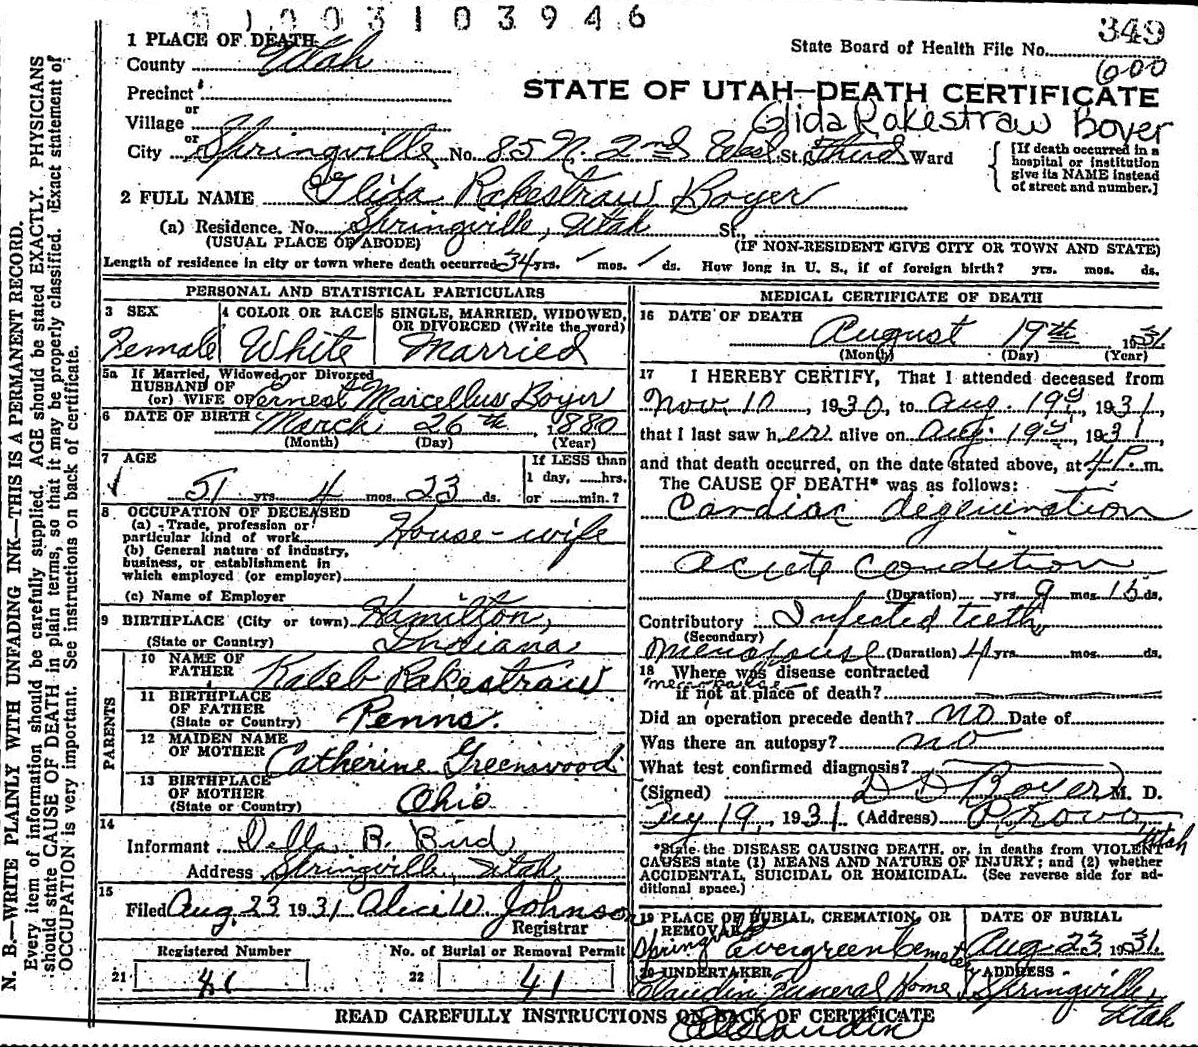 01003103946
349
1 PLACE OF DEATH
State Board of Health File No.
County Utah
600
Precinct
STATE OF UTAH—DEATH CERTIFICATE
or
Village
Glida Rakestraw Boyer
or
City Springville No. 85 N. 2nd West St. Third Ward
[If death occurred in a
hospital or institution
give its NAME instead
of street and number.]
2 FULL NAME Glida Rakestraw Boyer
(a) Residence. No. Springville, Utah St.,
(USUAL PLACE OF ABODE) (IF NON-RESIDENT GIVE CITY OR TOWN AND STATE)
Length of residence in city or town where death occurred 34 yrs. / mos. / ds. How long in U. S., if of foreign birth? yrs. mos. ds.
PERSONAL AND STATISTICAL PARTICULARS
3 SEX
Female
4 COLOR OR RACE
White
5 SINGLE, MARRIED, WIDOWED,
OR DIVORCED (Write the word)
Married
5a If Married, Widowed, or Divorced
HUSBAND OF
(or) WIFE OF Ernest Marcellus Boyer
6 DATE OF BIRTH March 26th, 1880
(Month) (Day) (Year)
7 AGE
51 yrs. 4 mos. 23 ds.
If LESS than
1 day, hrs.
or min.?
8 OCCUPATION OF DECEASED
(a) Trade, profession or
particular kind of work House-wife
(b) General nature of industry,
business, or establishment in
which employed (or employer)
(c) Name of Employer
9 BIRTHPLACE (City or town) Hamilton,
(State or Country) Indiana
PARENTS
10 NAME OF
FATHER Kaleb Rakestraw
11 BIRTHPLACE
OF FATHER
(State or Country) Penns.
12 MAIDEN NAME
OF MOTHER Catherine Greenswood
13 BIRTHPLACE
OF MOTHER
(State or Country) Ohio
14
Informant Della B. Bird
Address Springville, Utah
15
Filed Aug. 23 1931 Alice W. Johnson
Registrar
Registered Number No. of Burial or Removal Permit
21 41 22 41
MEDICAL CERTIFICATE OF DEATH
16 DATE OF DEATH
August 19th 1931
(Month) (Day) (Year)
17 I HEREBY CERTIFY, That I attended deceased from
Nov. 10, 1930, to Aug. 19, 1931,
that I last saw her alive on Aug. 19, 1931,
and that death occurred, on the date stated above, at 4 P. m.
The CAUSE OF DEATH* was as follows:
Cardiac degeneration
acute condition
(Duration) yrs. 9 mos. 15 ds.
Contributory Infected teeth
(Secondary)
Menopause (Duration) 4 yrs. mos. ds.
18 Where was disease contracted
menopause
if not at place of death?
Did an operation precede death? no Date of
Was there an autopsy? no
What test confirmed diagnosis?
(Signed) D D Boyer M. D.
19, 1931 (Address) Provo, Utah
*State the DISEASE CAUSING DEATH, or, in deaths from VIOLENT
CAUSES state (1) MEANS AND NATURE OF INJURY; and (2) whether
ACCIDENTAL, SUICIDAL OR HOMICIDAL. (See reverse side for ad-
ditional space.)
19 PLACE OF BURIAL, CREMATION, OR
REMOVAL
Springville Evergreen Cemetery
DATE OF BURIAL
Aug. 23 1931
20 UNDERTAKER
Claudin Funeral Home
ADDRESS
Springville,
Utah
READ CAREFULLY INSTRUCTIONS ON BACK OF CERTIFICATE
N. B.—WRITE PLAINLY WITH UNFADING INK—THIS IS A PERMANENT RECORD.
Every item of information should be carefully supplied. AGE should be stated EXACTLY. PHYSICIANS
should state CAUSE OF DEATH in plain terms, so that it may be properly classified. Exact statement of
OCCUPATION is very important. See instructions on back of certificate.